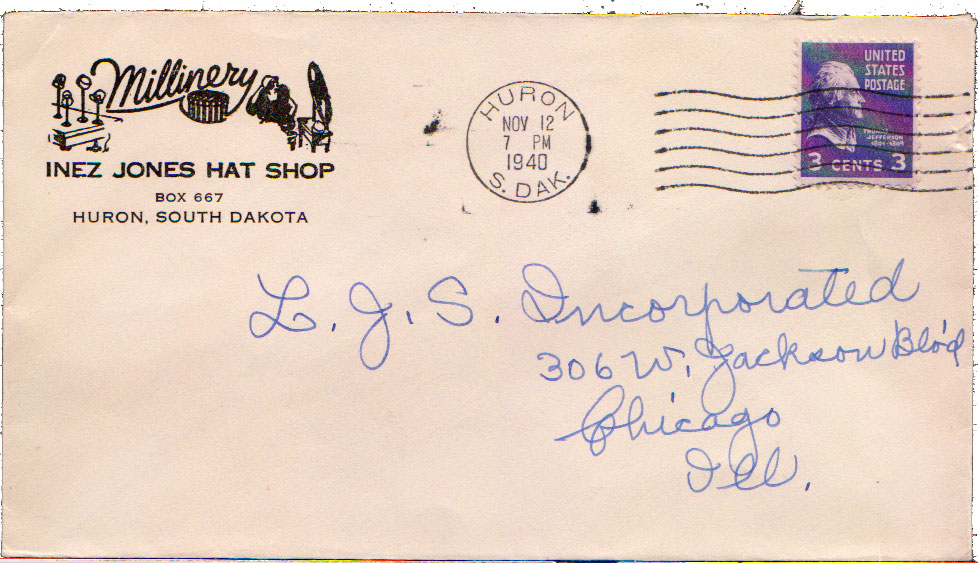 Millinery
INEZ JONES HAT SHOP
BOX 667
HURON, SOUTH DAKOTA
HURON
NOV 12
7 PM
1940
S. DAK.
UNITED
STATES
POSTAGE
THOMAS
JEFFERSON
1801-1809
3 CENTS 3
L. J. S. Incorporated
306 W. Jackson Blo'd
Chicago
Ill.